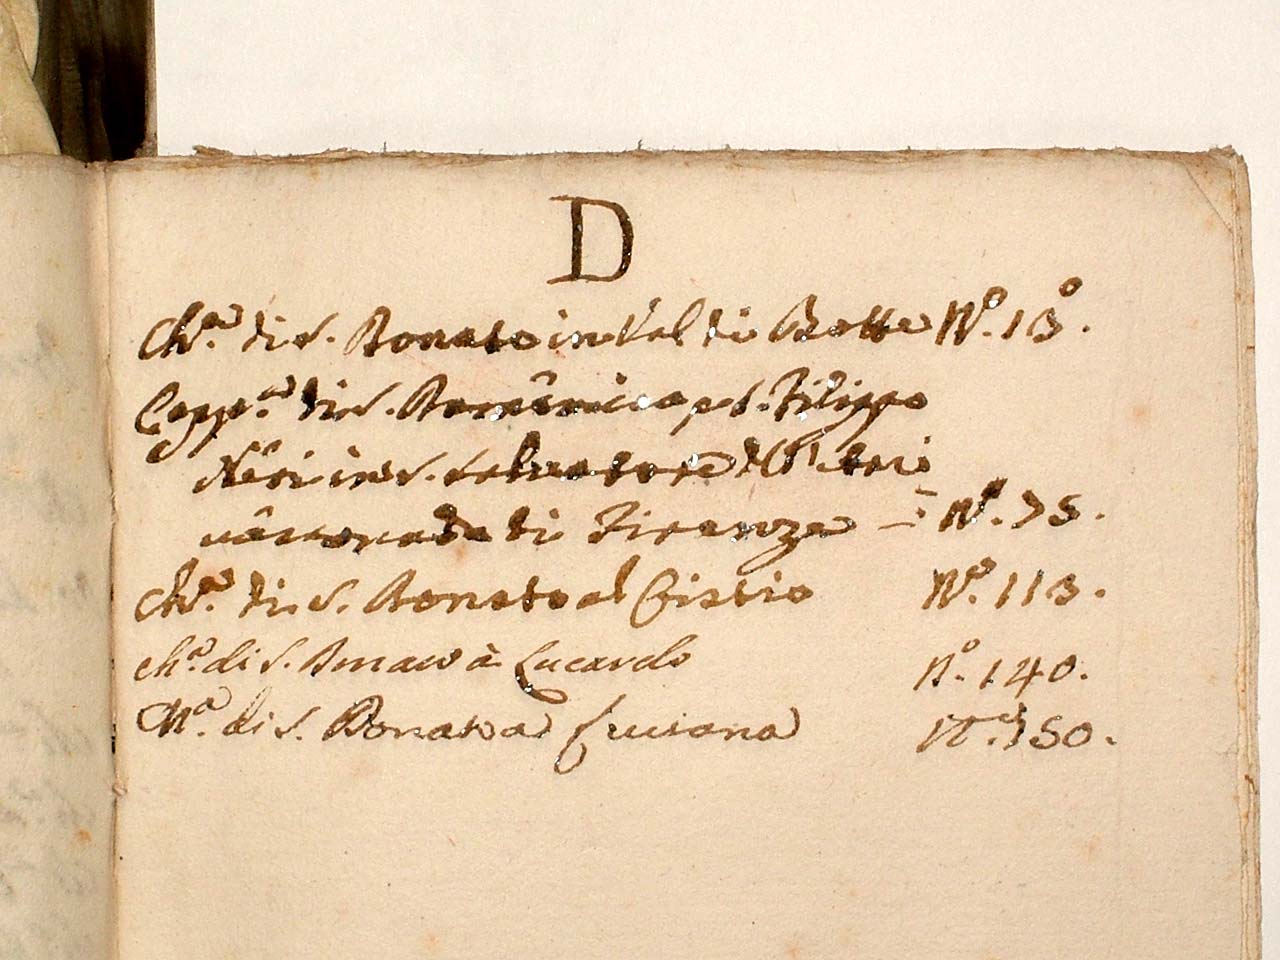 D
Ch.ª di S. Donato in Val di Botte Nº. 13.
Capp.ª di S. Domênico, e S. Filippo
Neri in S. Salvatore
di Firenze = Nº. 75.
Ch.ª di S. Donato al Cistio Nº. 113.
Ch.ª di S. Donato à Lucardo Nº. 140.
Ch.ª di S. Donato a Luciana Nº. 150.